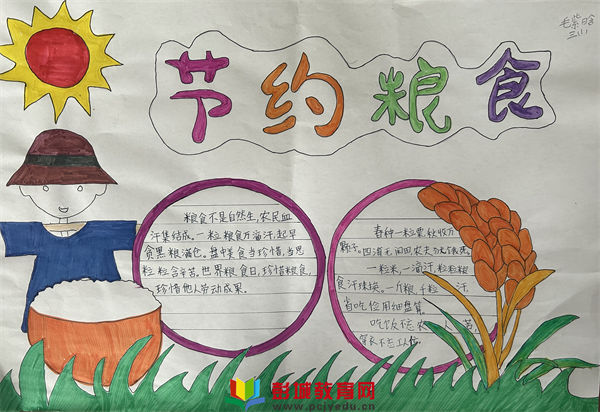 毛紫晗
三(1)
节约粮食
粮食不是自然生,农民血
汗集结成。一粒粮食万滴汗,起早
贪黑粮满仓。盘中美食当珍惜,当思
粒粒含辛苦。世界粮食日,珍惜粮食,
珍惜他人劳动成果。
春种一粒粟,秋收万
颗子。四海无闲田,农夫
一粒米,一滴汗,粒粒粮
食汗珠换。一斤粮,千粒 汗,
省吃俭用细盘算。
吃饭不忘农 人 苦,
穿衣不忘工人
彭城教育网
www.pcjyedu.cn